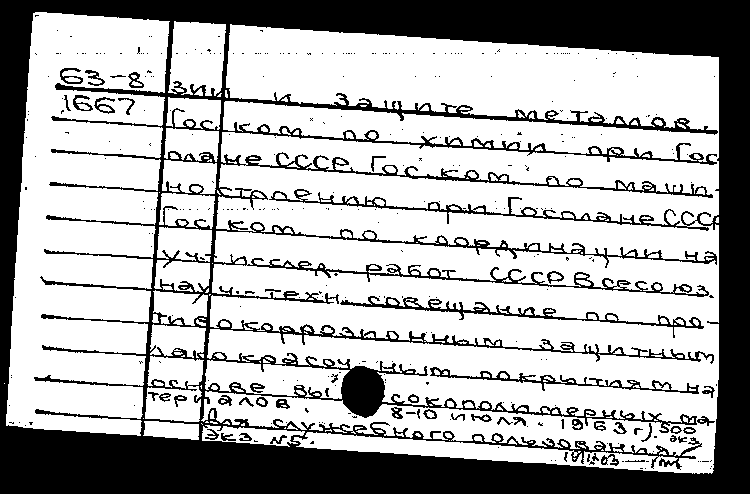 63-8 зии и защите металлов.
1667 Гос. ком. по химии при Гос
плане СССР. Гос. ком. по маши-
ностроению при Госплане СССР
Гос. ком. по координации на
уч.-исслед. работ СССР Всесоюз.
науч.-техн. совещание по про-
тивокоррозионным защитным
лакокрасочным покрытиям на
основе высокополимерных ма
териалов. 8-10 июля. 1963 г). 500 экз
Для служебного пользования.
Экз. №5.